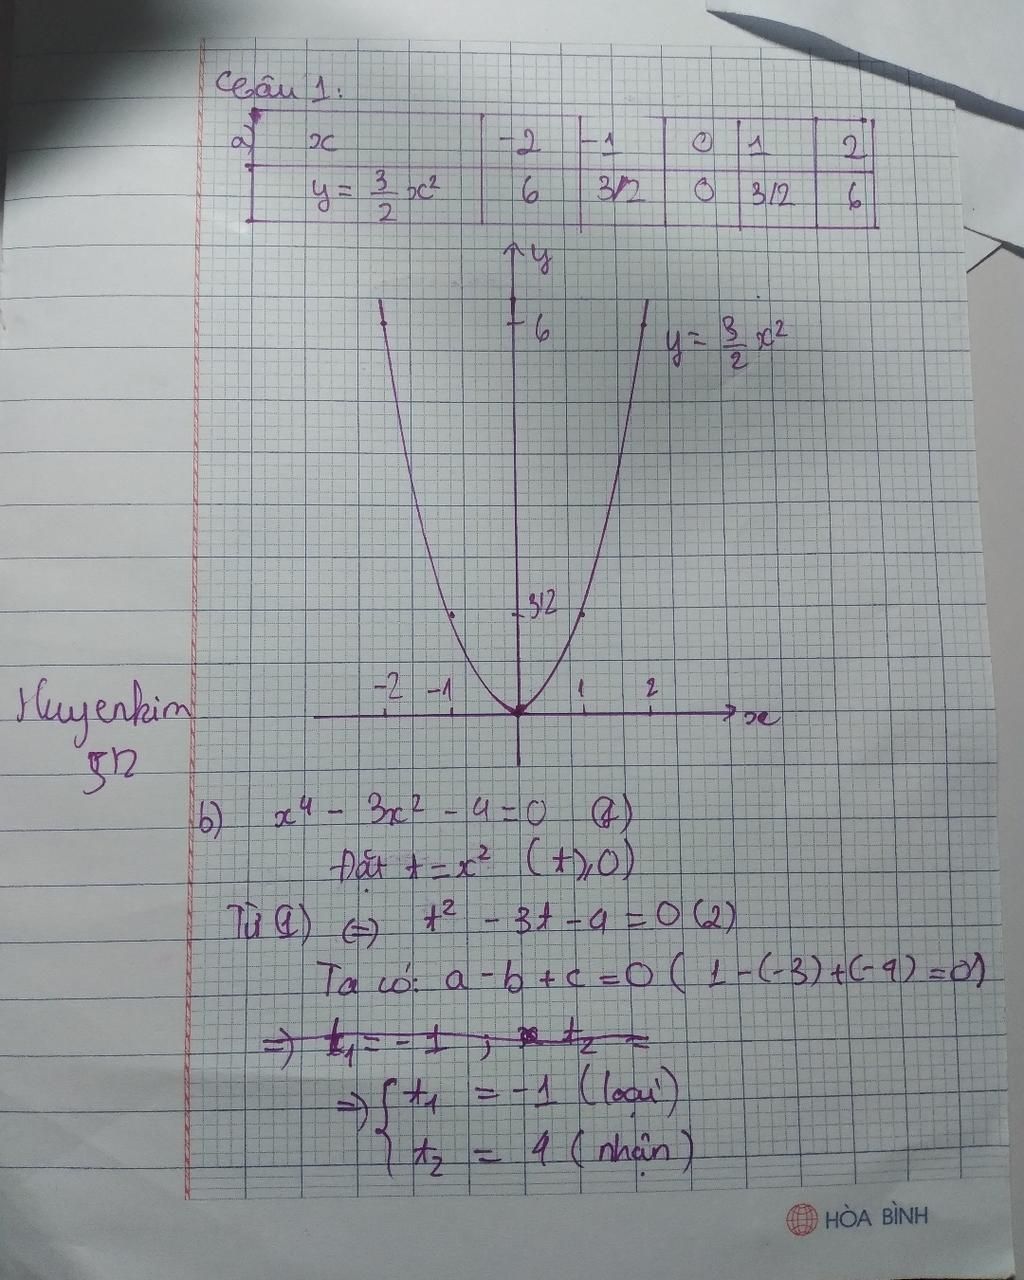 Câu 1.
a) x -2 -1 0 1 2
y = 3/2 x² 6 3/2 0 3/2 6
y
6
y = 3/2 x²
3/2
-2 -1 1 2
x
Huyenkim
512
b) x⁴ - 3x² - 4 = 0 (1)
Đặt t = x² (t ≥ 0)
Từ (1) ⇔ t² - 3t - 4 = 0 (2)
Ta có: a - b + c = 0 ( 1 - (-3) + (-4) = 0)
⇒ t₁ = -1 ; t₂ =
⇒ { t₁ = -1 (loại)
t₂ = 4 (nhận)
HÒA BÌNH